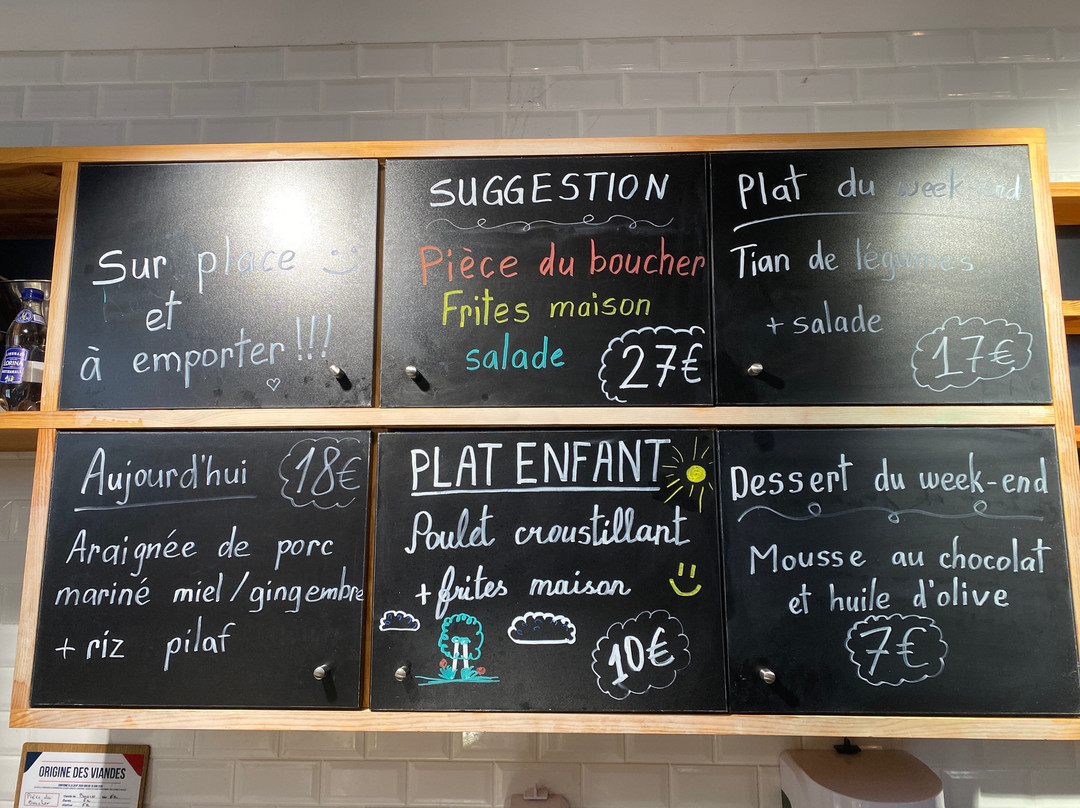 Sur place
et
à emporter !!!
SUGGESTION
Pièce du boucher
Frites maison
salade
27€
Plat du week-end
Tian de légumes
+ salade
17€
Aujourd'hui
18€
Araignée de porc
mariné miel/gingembre
+ riz pilaf
PLAT ENFANT
Poulet croustillant
+ frites maison
10€
Dessert du week-end
Mousse au chocolat
et huile d'olive
7€
LORINA
ORIGINE DES VIANDES
Pièce du
Boucher